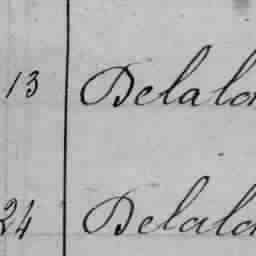 13 Delalon
24 Delalon